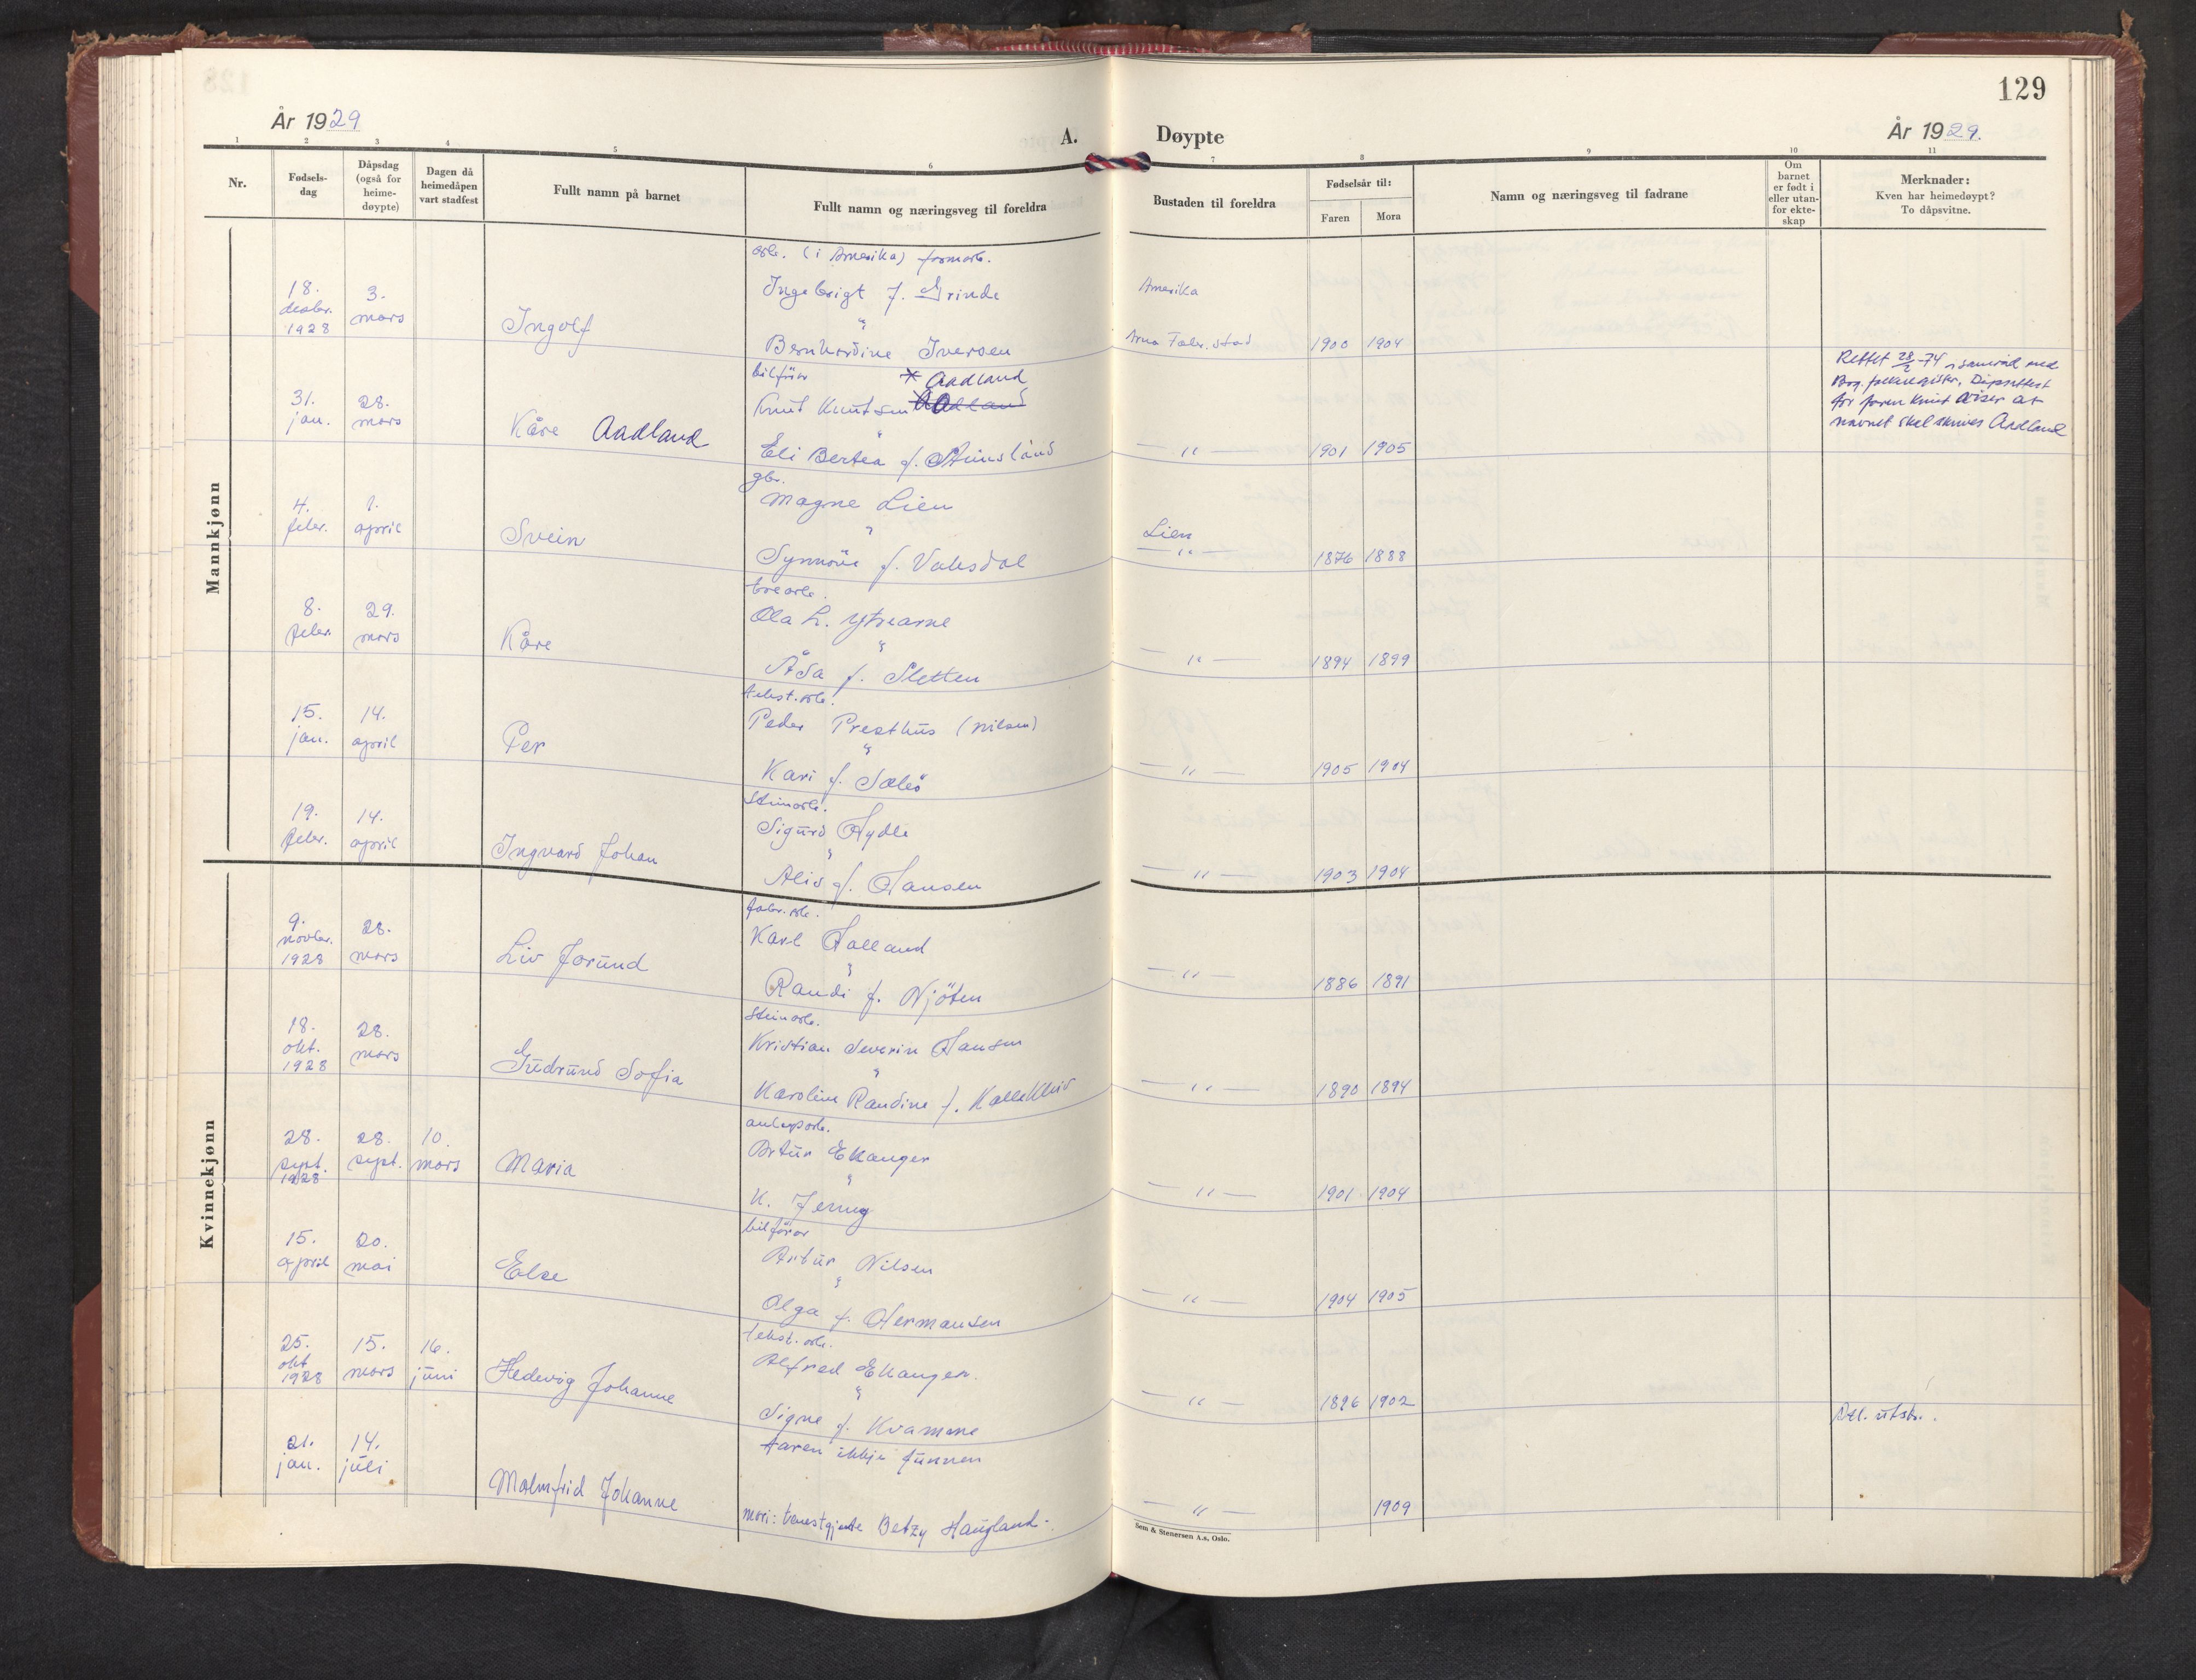 129
År 1929
A. Døypte
År 1929.
1 2 3 4 5 6 7 8 9 10 11
Nr.
Fødsels-
dag
Dåpsdag
(også for
heime-
døypte)
Dagen då
heimedåpen
vart stadfest
Fullt namn på barnet
Fullt namn og næringsveg til foreldra
Bustaden til foreldra
Fødselsår til:
Faren Mora
Namn og næringsveg til fadrane
Om
barnet
er født i
eller utan-
for ekte-
skap
Merknader:
Kven har heimedøypt?
To dåpsvitne.
Mannkjønn
arb. (i Amerika) formarb.
18. desbr. 1928
3. mars
Ingolf
Ingebrigt J. Grinde
"
Bernhardine Iversen
Amerika
Arna Fabr. stad
1900 1904
31. jan.
28. mars
Kåre Aadland
bilförar
* Aadland
Knut Knutsen
"
Eli Bertea f.
— " —
1901 1905
Rettet 28/2-74 i samråd med
folkeregister. Dåpsattest
for faren Knut viser at
navnet skal skrives Aadland
4. febr.
1. april
Svein
gbr.
Magne Lien
"
Synnöve f. Vaksdal
Lien
— " —
1876 1888
8. febr.
29. mars
Kåre
trearb.
Ola L. Ytrearne
"
Åsa f. Sletten
— " —
1894 1899
15. jan.
14. april
Per
tekst.arb.
Peder Presthus (Nilsen)
"
Kari f. Sælö
— " —
1905 1904
19. febr.
14. april
Ingvard Johan
Steinarb.
Sigurd Hydle
"
Alis f. Hansen
— " —
1903 1904
Kvinnekjønn
9. novbr. 1928
28. mars
Liv Jorund
fabr. arb.
Karl Halland
"
Randi f. Njöten
— " —
1886 1891
18. okt. 1928
28. mars
Gudrund Sofia
Steinarb.
Kristian Severin Hansen
"
Karoline Randine f. Kallekleiv
— " —
1890 1894
28. sept. 1928
28. sept.
10. mars
Maria
anleggsarb.
Artur Ekanger
"
K. Jenny
— " —
1901 1904
15. april
20. mai
Else
bilförar
Artur Nilsen
"
Olga f. Hermansen
— " —
1904 1905
25. okt 1928
15. mars
16. juni
Hedevig Johanne
tekst. arb.
Alfred Ekanger.
"
Signe f. Kvamme
— " —
1896 1902
21. jan.
14. juli
Malmfrid Johanne
Faren ikkje funnen
mori: tenestgjente Betzy Haugland.
— " —
1909
utskr.
Sem & Stenersen A.s, Oslo.